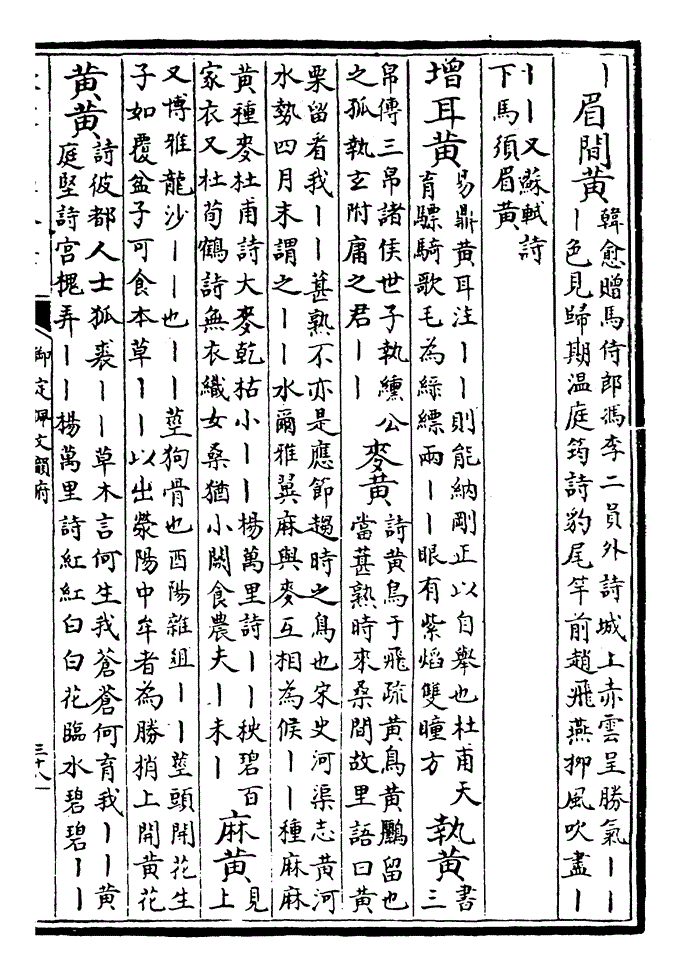 丨眉間黃
韓愈贈馬侍郎馮李二員外詩城上赤雲呈勝氣丨丨
丨色見歸期温庭筠詩豹尾竿前趙飛燕柳風吹盡丨
丨丨又蘇軾詩
下馬須眉黃
增耳黃
易鼎黃耳注丨丨則能納剛正以自舉也杜甫天
育驃騎歌毛為綠縹兩丨丨眼有紫焰雙瞳方
執黃
書
三
帛傳三帛諸侯世子執纁公
之孤執玄附庸之君丨丨
麥黃
詩黃鳥于飛疏黃鳥黃鸝留也
當葚熟時來桑間故里語曰黃
栗留看我丨丨葚熟不亦是應節趨時之鳥也宋史河渠志黃河
水勢四月末謂之丨丨水爾雅翼麻與麥互相為候丨丨種麻麻
黃種麥杜甫詩大麥乾枯小丨丨楊萬里詩丨丨秧碧百
家衣又杜荀鶴詩無衣織女桑猶小闕食農夫丨未丨
麻黃
見
上
又博雅龍沙丨丨也丨丨莖狗骨也酉陽雜俎丨丨莖頭開花生
子如覆盆子可食本草丨丨以出滎陽中牟者為勝梢上開黃花
黃黃
詩彼都人士狐裘丨丨草木言何生我蒼蒼何育我丨丨黃
庭堅詩宮槐弄丨丨楊萬里詩紅紅白白花臨水碧碧丨丨
御定佩文韻府
三十八